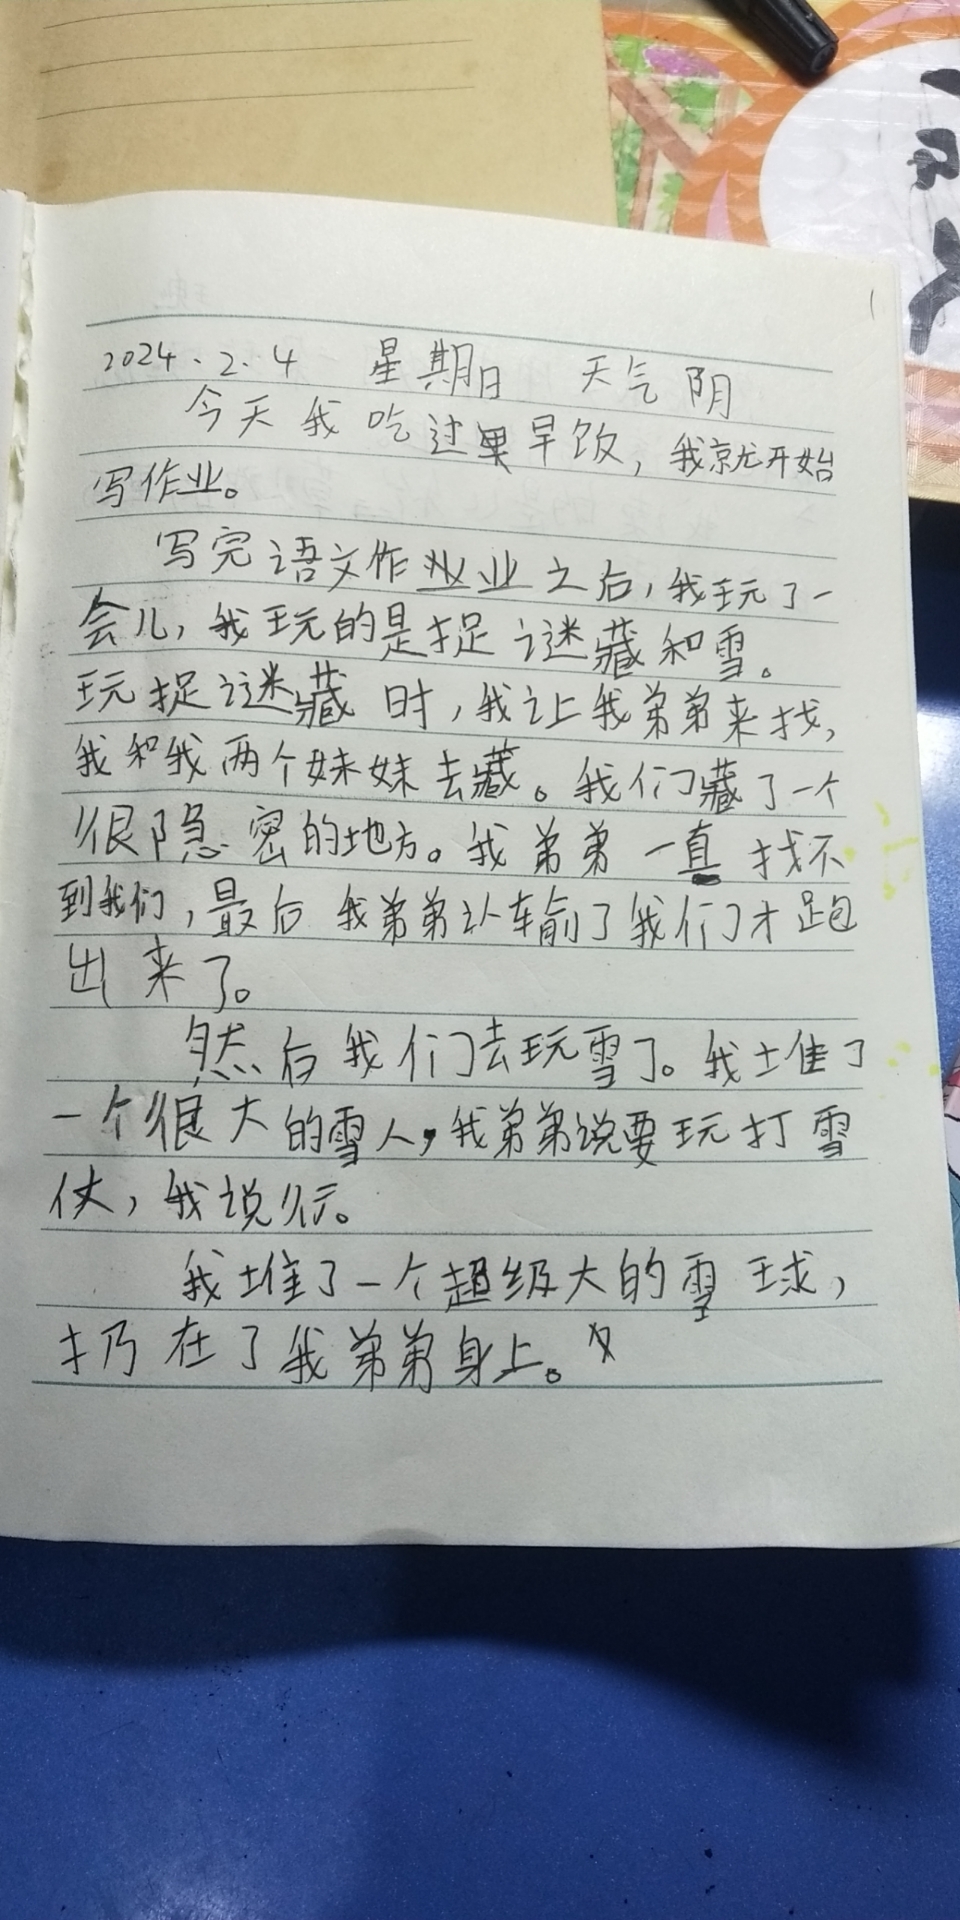 2024.2.4 星期日 天气 阴
今天我吃过早饭，我就开始
写作业。
写完语文作业之后，我玩了一
会儿，我玩的是捉谜藏和雪。
玩捉谜藏时，我让我弟弟来找，
我和我两个妹妹去藏。我们藏了一个
很隐密的地方。我弟弟一直找不
到我们，最后我弟弟认输了我们才跑
出来了。
然后我们去玩雪了。我堆了
一个很大的雪人，我弟弟说要玩打雪
仗，我说行。
我堆了一个超级大的雪球，
扔在了我弟弟身上。